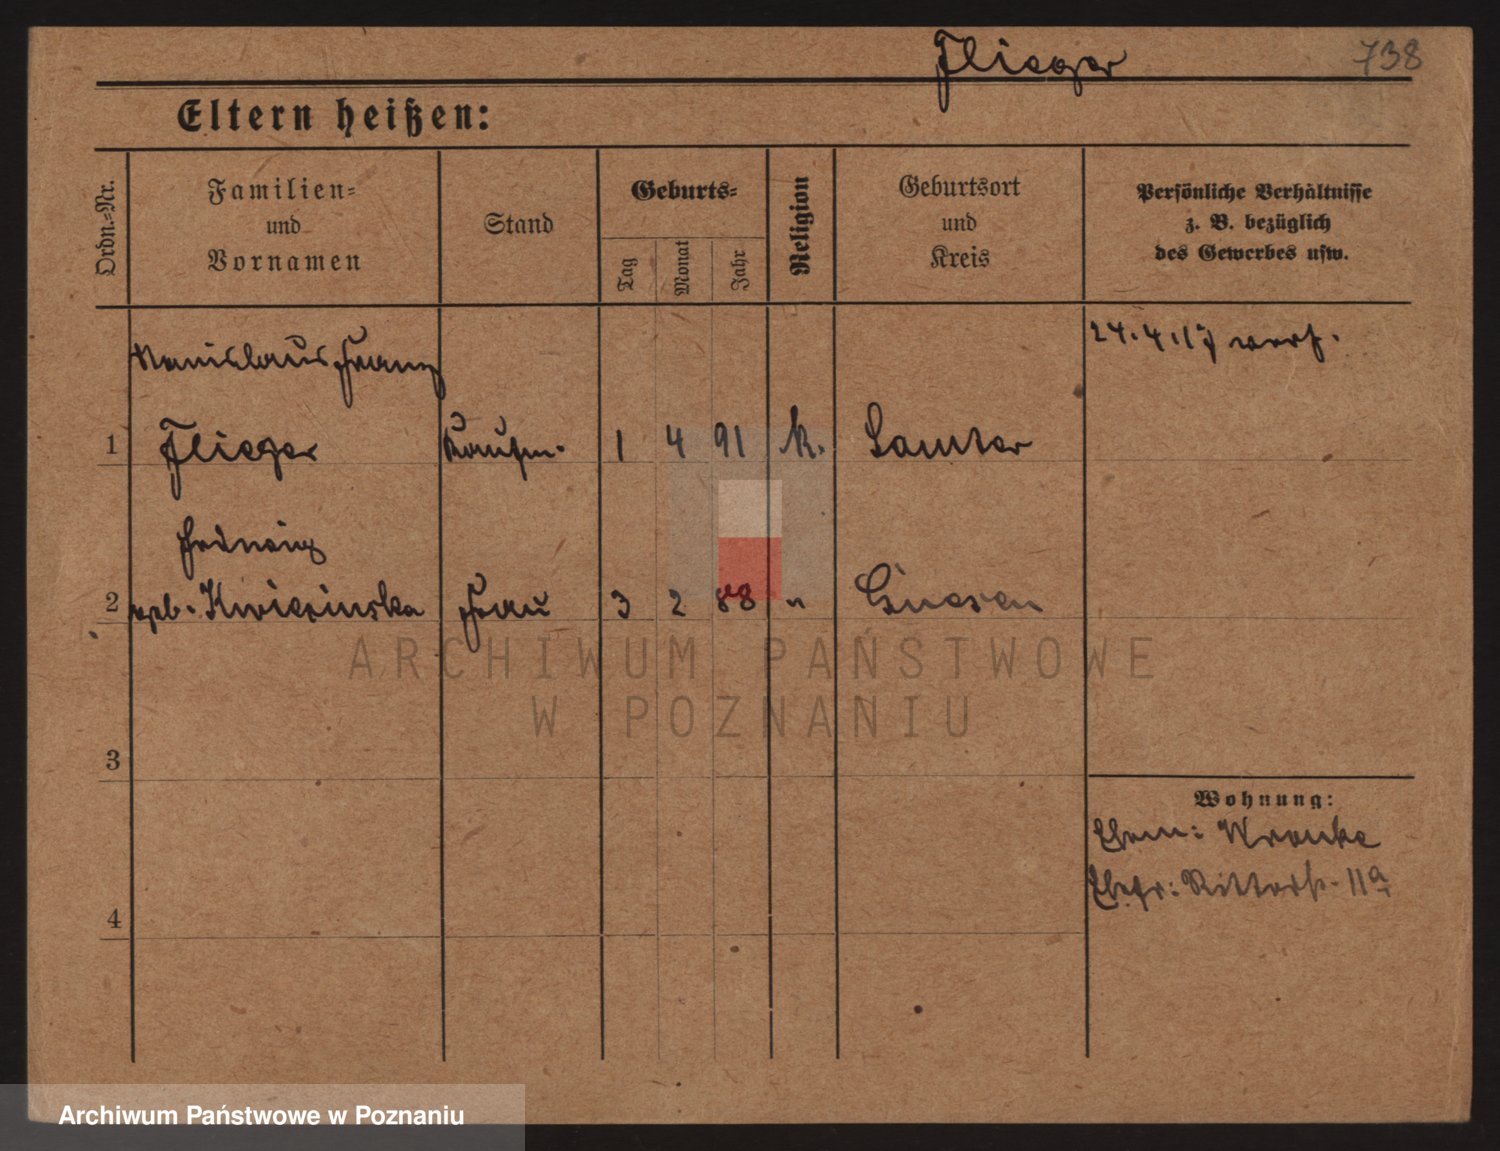 Flieger
738
Eltern heißen:
Ordn.-Nr.
Familien-
und
Vornamen
Stand
Geburts-
Tag
Monat
Jahr
Religion
Geburtsort
und
Kreis
Persönliche Verhältnisse
z. B. bezüglich
des Gewerbes usw.
Stanislaus Franz
24.4.17 verh.
1 Flieger Kaufm. 1 4 91 k. Samter
Hedwig
2 geb. Kwiecinska Frau 3 2 88 " Gnesen
3
4
Wohnung:
Ehem: Wronke
Ehefr: Ritterstr. 11a
ARCHIWUM PAŃSTWOWE
W POZNANIU
Archiwum Państwowe w Poznaniu